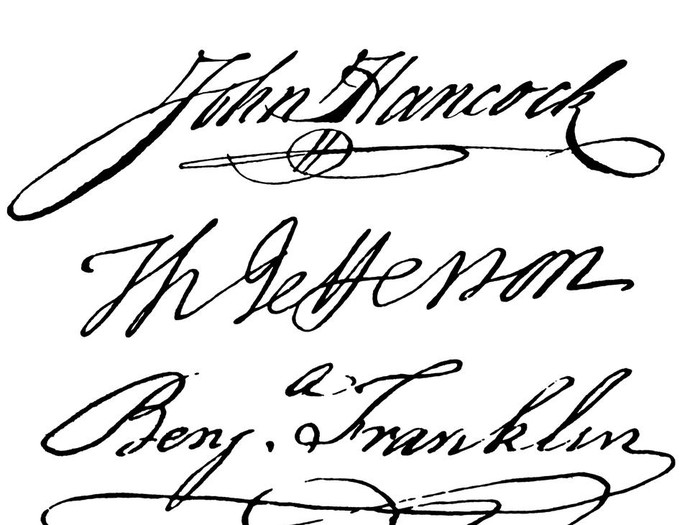 John Hancock
Th Jefferson
Benj. a Franklin